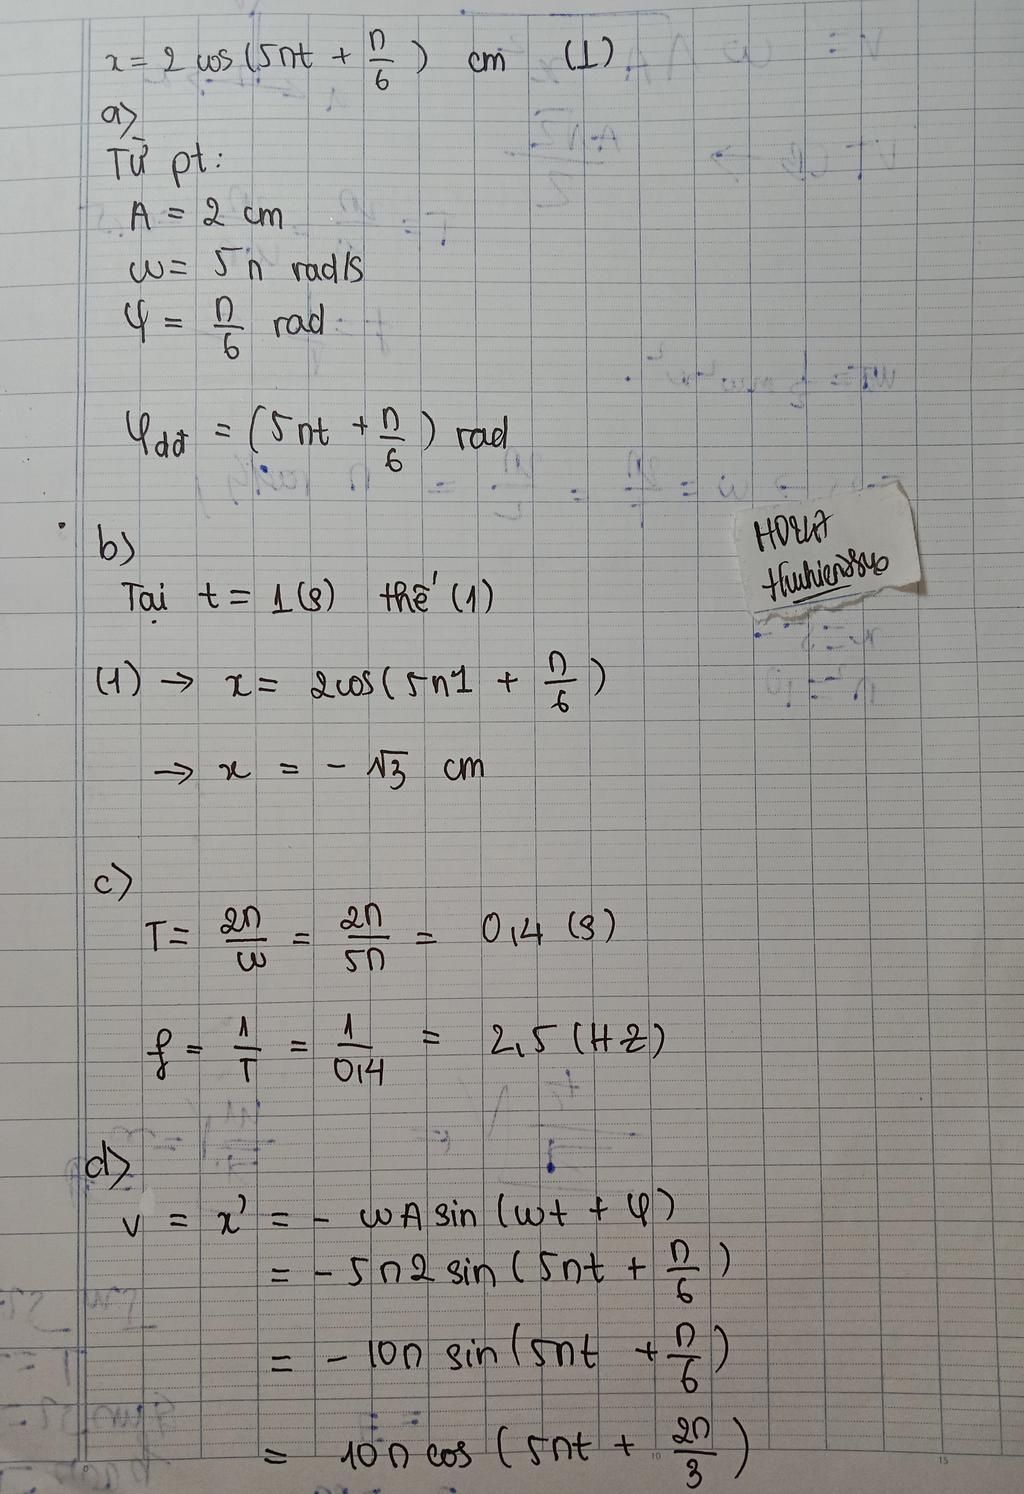 x = 2 cos (5πt + π/6) cm (1)
a)
Từ pt:
A = 2 cm
ω = 5π rad/s
φ = π/6 rad
φdđ = (5πt + π/6) rad
b)
Tại t = 1(s) thế (1)
(1) → x = 2cos(5π1 + π/6)
→ x = - √3 cm
HOZ47
thuhien8840
c)
T = 2π/ω = 2π/5π = 0,4 (s)
f = 1/T = 1/0,4 = 2,5 (HZ)
d)
v = x' = - ωA sin (ωt + φ)
= - 5π2 sin (5πt + π/6)
= - 10π sin (5πt + π/6)
= 10π cos (5πt + 2π/3)